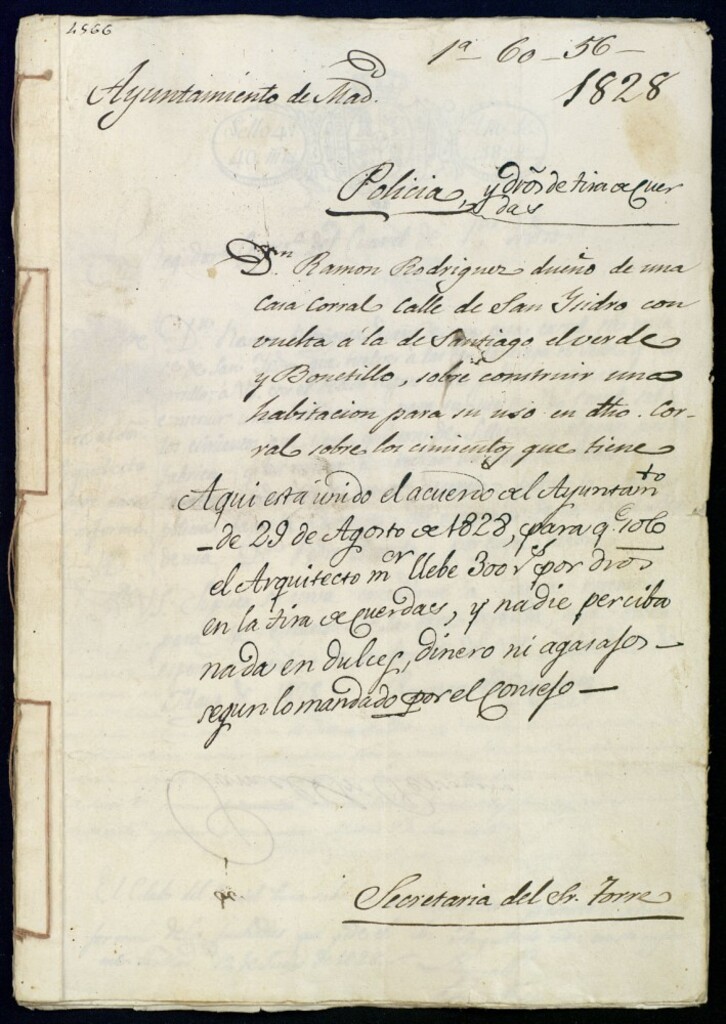 4566
1ª - 60 - 56 -
Ayuntamiento de Madd.
1828
Policia, y dros de tira de Cuer
das
Dn. Ramon Rodriguez dueño de una
Casa Corral Calle de San Ysidro con
vuelta á la de Santiago el verde
y Bonetillo, sobre construir una
habitacion para su uso en dho. Cor-
ral sobre los cimientos que tiene
Aqui está unido el acuerdo del Ayuntamto
- de 29 de Agosto de 1828, para qe solo
el Arquitecto mor llebe 300 rs por dros
en la tira de Cuerdas, y nadie perciba
nada en dulces, dinero ni agasajos -
segun lo mandado por el Consejo -
Secretaria del Sr. Torre